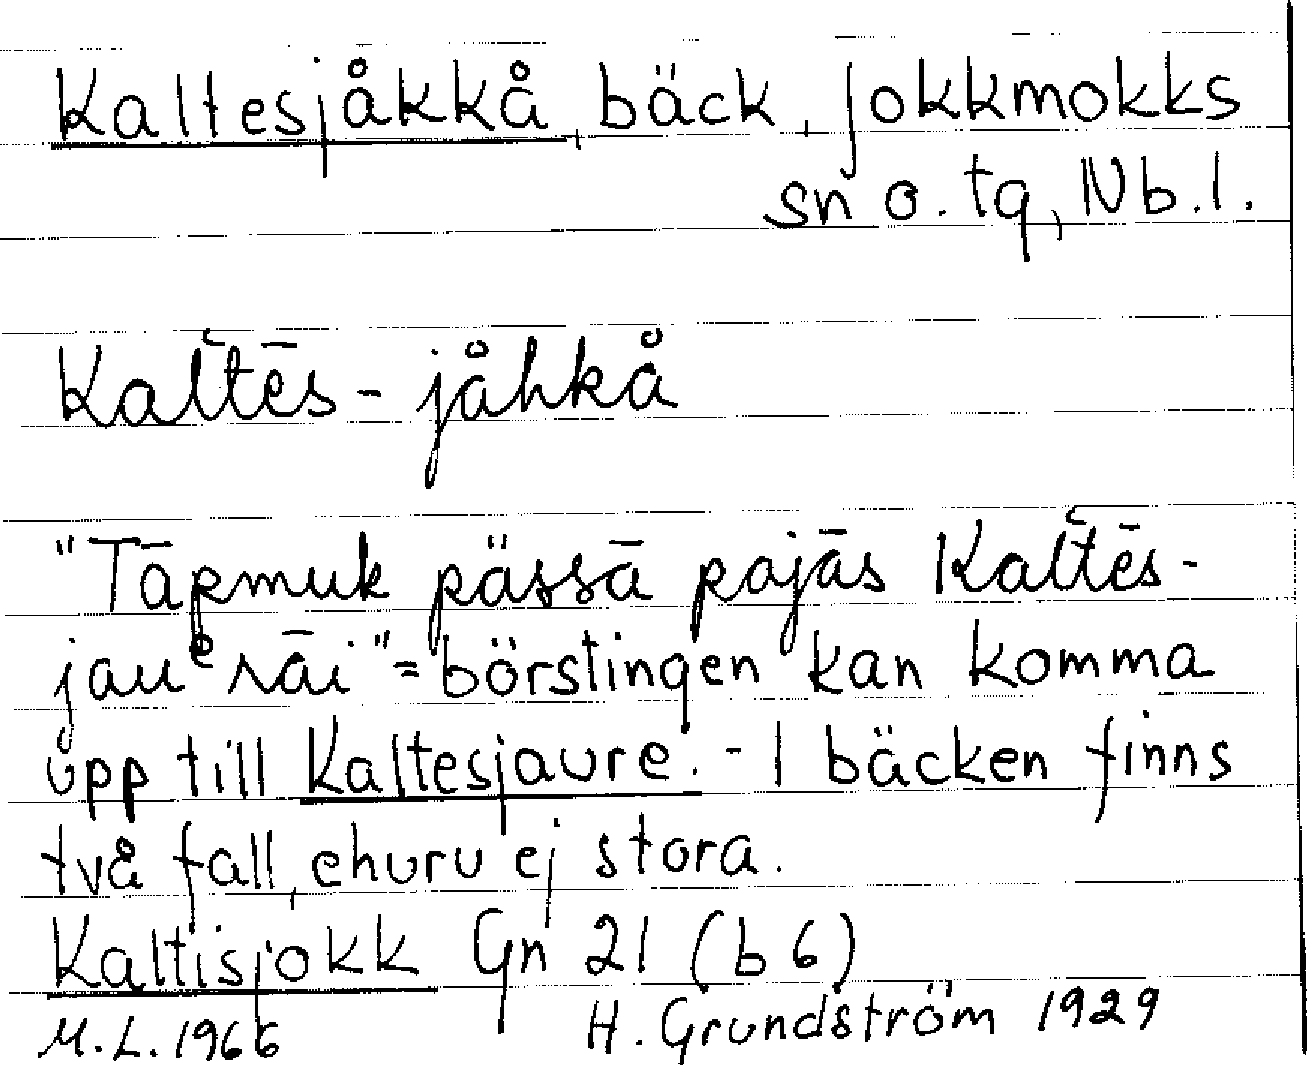 Kaltesjåkkå, bäck, Jokkmokks
sn o. tg, Nb.l.
Kal̆tēs-jåhkå
"Tāpmuk pässā pajās Kal̆tēs-
jauᵉrāi" = börstingen kan komma
upp till Kaltesjaure. - I bäcken finns
två fall, ehuru ej stora.
Kaltisjokk Gn 21 (b 6)
M.L. 1966 H. Grundström 1929